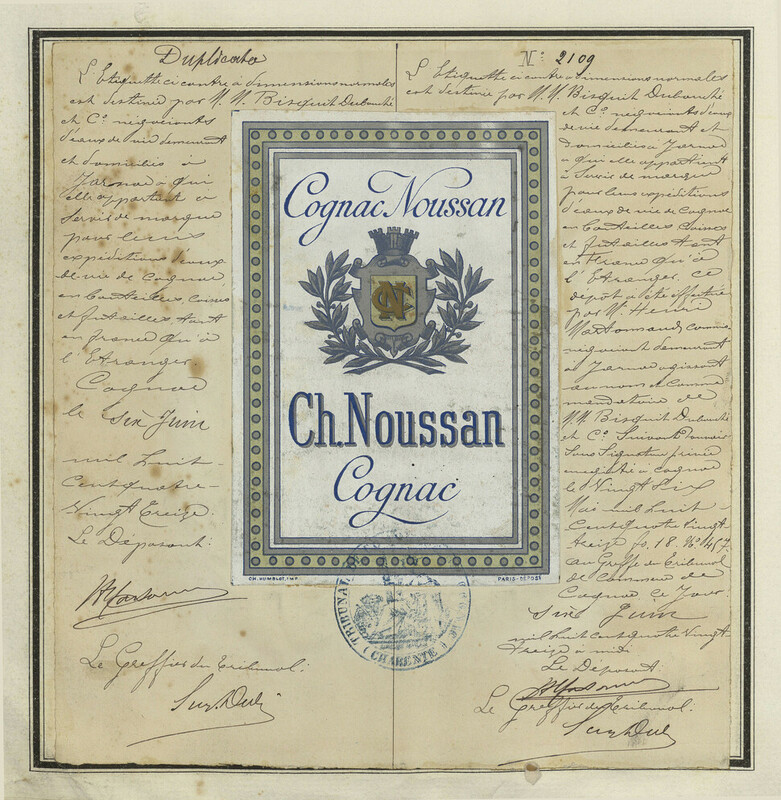 Duplicata
L'Etiquette ci contre à dimensions normales
est destinée par M. M. Bisquit Dubouché
et Cie négociants
d'eaux de vie demeurant
et domiciliés à
Jarnac à qui
elle appartient à
servir de marque
pour leurs
expéditions d'eaux
de vie de Cognac
en bouteilles, caisses
et futailles tant
en france qu'à
l'Etranger
Cognac
le six Juin
mil huit
cent quatre
vingt treize.
Le Déposant:
Le Greffier du Tribunal:
Cognac Noussan
NC
Ch. Noussan
Cognac
CH. HUMBLOT, IMP.
PARIS-DÉPOSÉ
TRIBUNAL DE COMMERCE
(CHARENTE)
No: 2109
L'Etiquette ci contre à dimensions normales
est destinée par M. M. Bisquit Dubouché
et Cie négociants d'eaux
de vie demeurant et
domiciliés à Jarnac
à qui elle appartient
à servir de marque
pour leurs expéditions
d'eaux de vie de Cognac
en bouteilles Caisses
et futailles tant
en France qu'à
l'Etranger, ce
dépôt a été effectué
par Mr Henri
négociant demeurant
à Jarnac agissant
au nom et comme
mandataire de
M. M. Bisquit Dubouché
et Cie Suivant pouvoir
sous signature privée
enregistré à Cognac
le Vingt Six
Mai mil huit
Cent quatre Vingt
treize fo. 18.
au Greffe du Tribunal
de Commerce de
Cognac ce Jour
six Juin
mil huit cent quatre Vingt
treize à midi
Le Déposant:
Le Greffier du Tribunal: